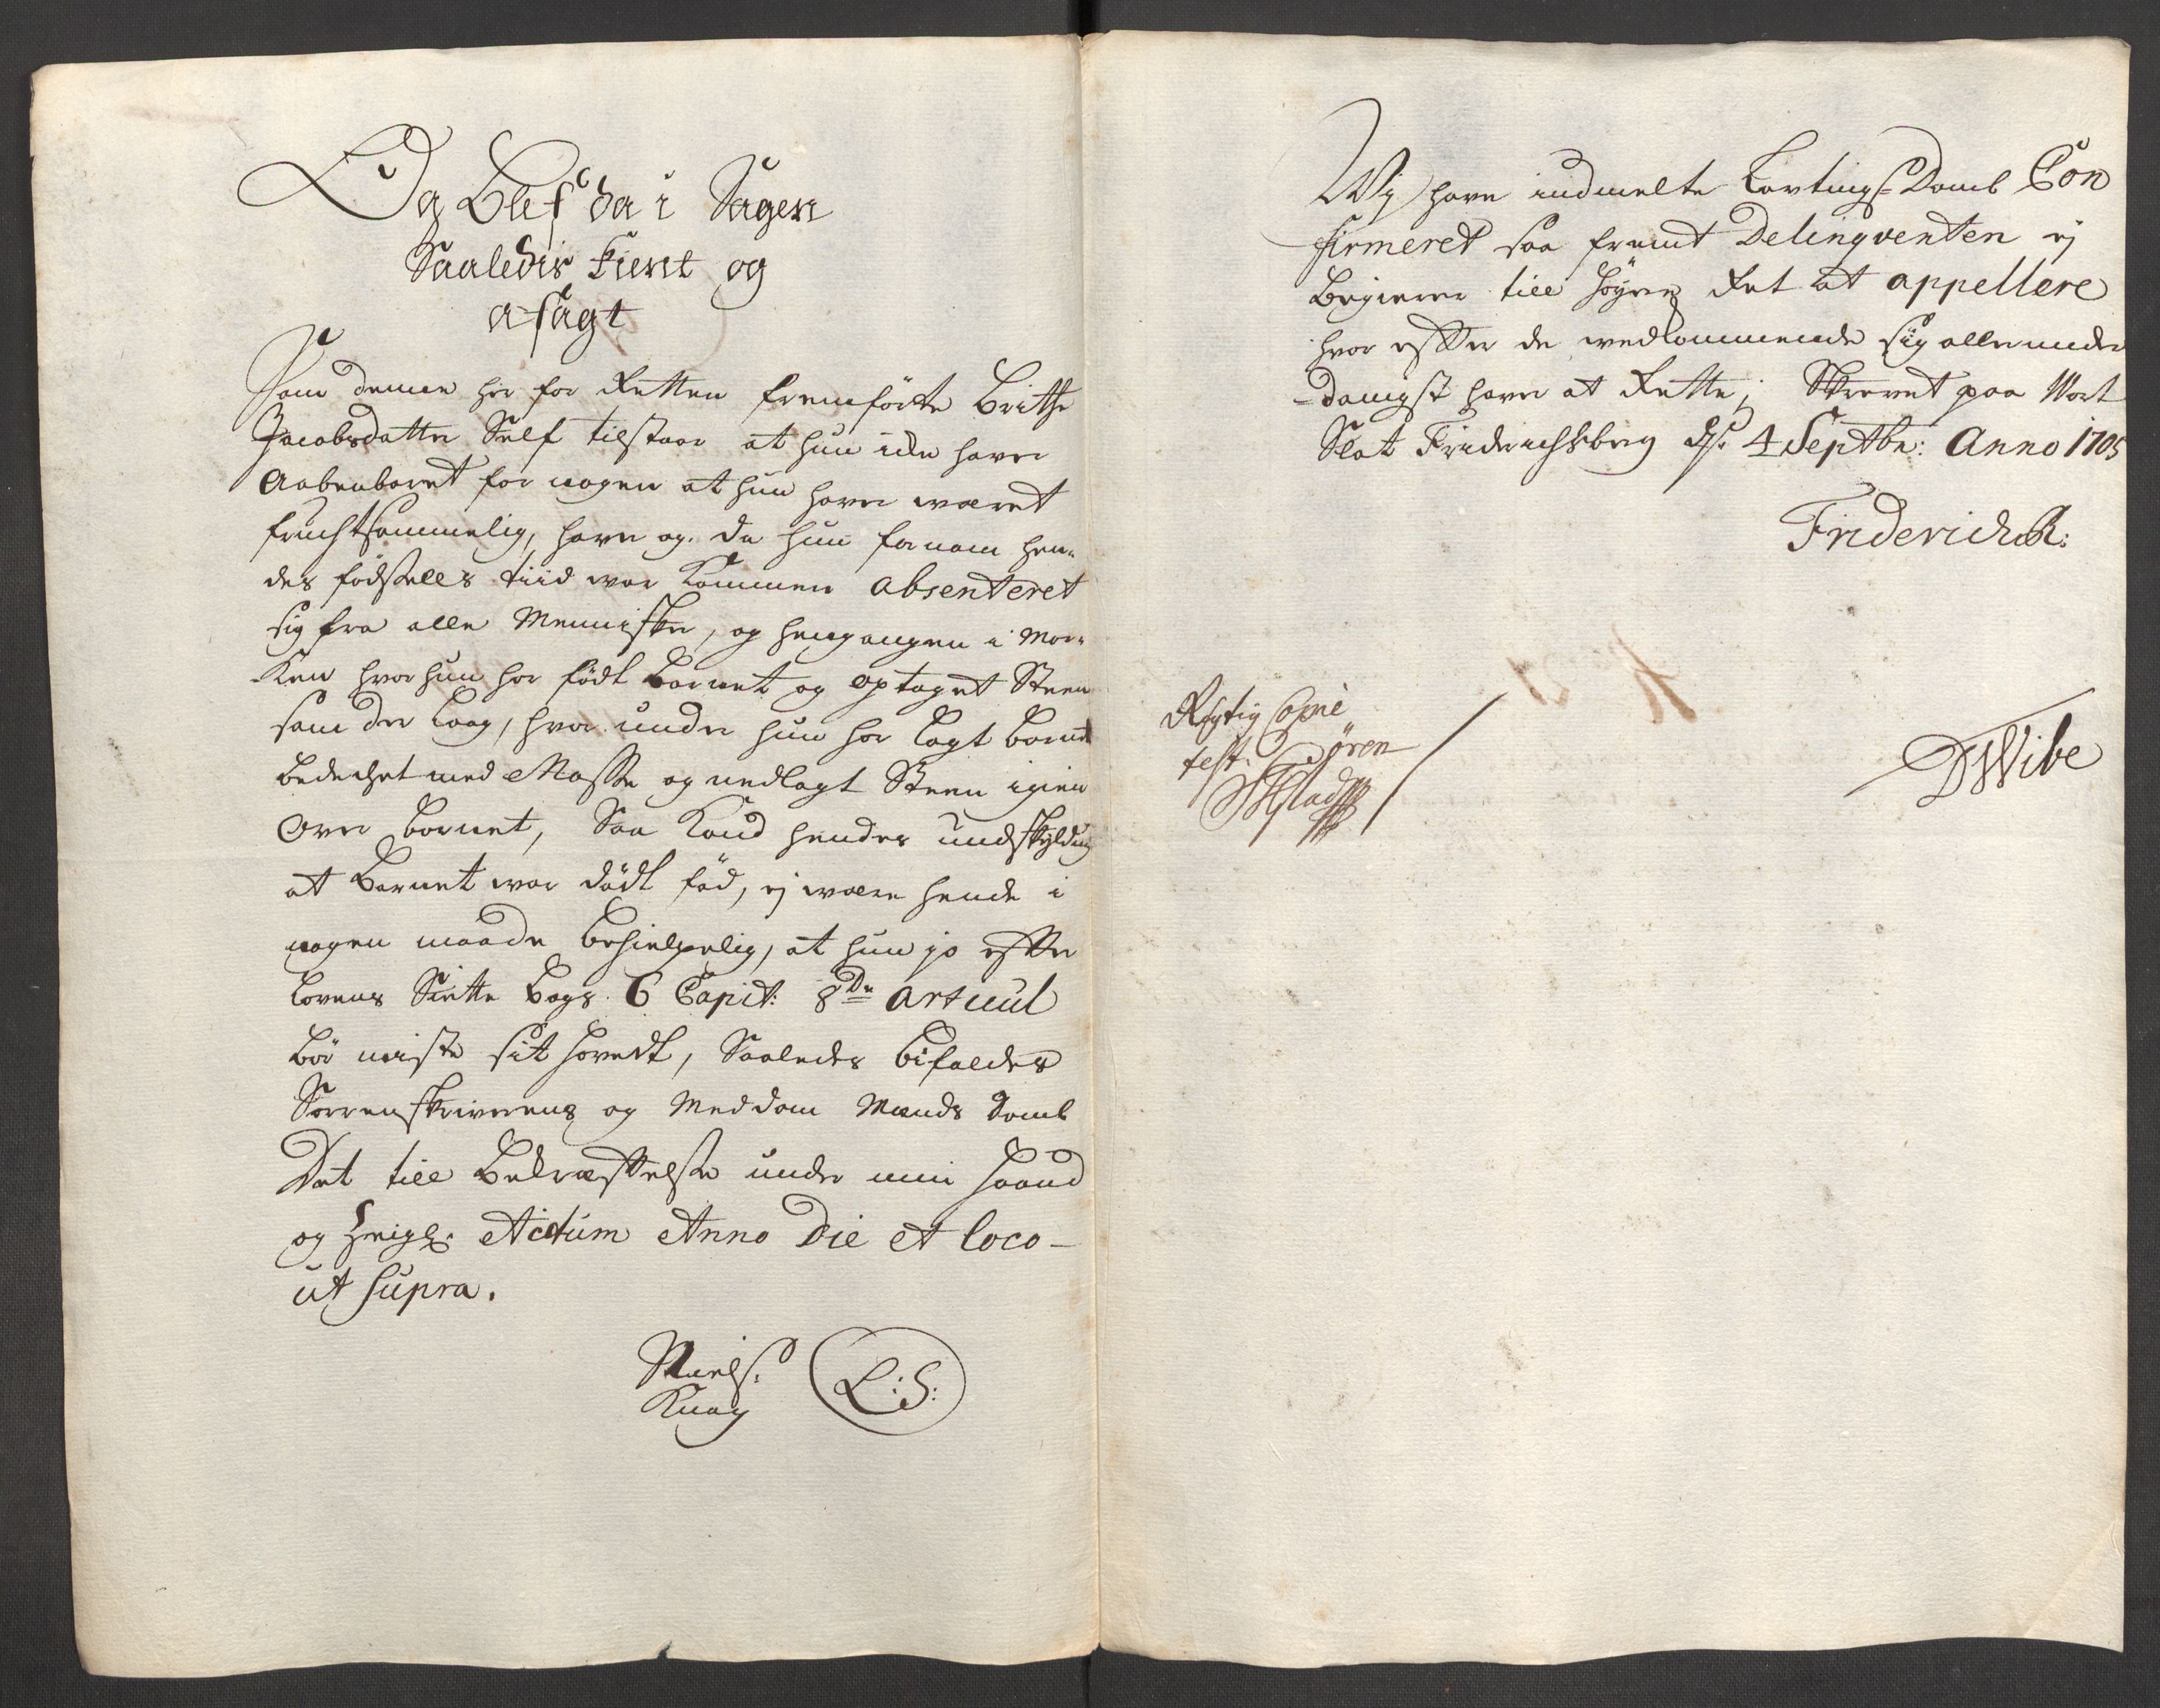 Da Blef da i Sagen
Saaledis Kient og
afsagt
Som denne her for Retten fremförte Brithe
Jacobsdatter Self tilstaar at hun icke haver
Aabenbaret for nogen at hun haver wæret
fruchtsommelig, haver og. da hun fornam hen„
des födsells tiid war Kommen absenteret
sig fra alle Mennisker, og hengangen i Mar„
-Ken hvor hun har födt Barnet og optaget Steene
som der laag, hvor under hun har lagt barnet
bedechet med Masse og nedlagt Steen igien
Over barnet, Saa Kand hendes undskylding
at Barnet war dödt fød, ej wære hende i
nogen maade behielpelig, at hun jo effter
Lovens Siette Bogs 6 Capit: 8de articul
bör miste sit hovedt, Saaledes bifaldes
Sorrenskriverens og Meddoms Mænds Domb
Det till Bekræfftelse under min Haand
og Zeigl. Actum Anno Die et loco-
ut supra.
Niels.
Knag L:S:
Wij have indmelte Lavtings-Domb Con
firmeret saa fremt Delinqventen ej
begierer till höyere Ret at appellere
hvor effter de wedkommende sig allerunder
-danigst haver at Rette; Skrevet paa Wort
Slot Friderichsberg d. 4 Septbr: Anno 1705
Friderich R:
Rigtig Copie
test. Sören
DWibe